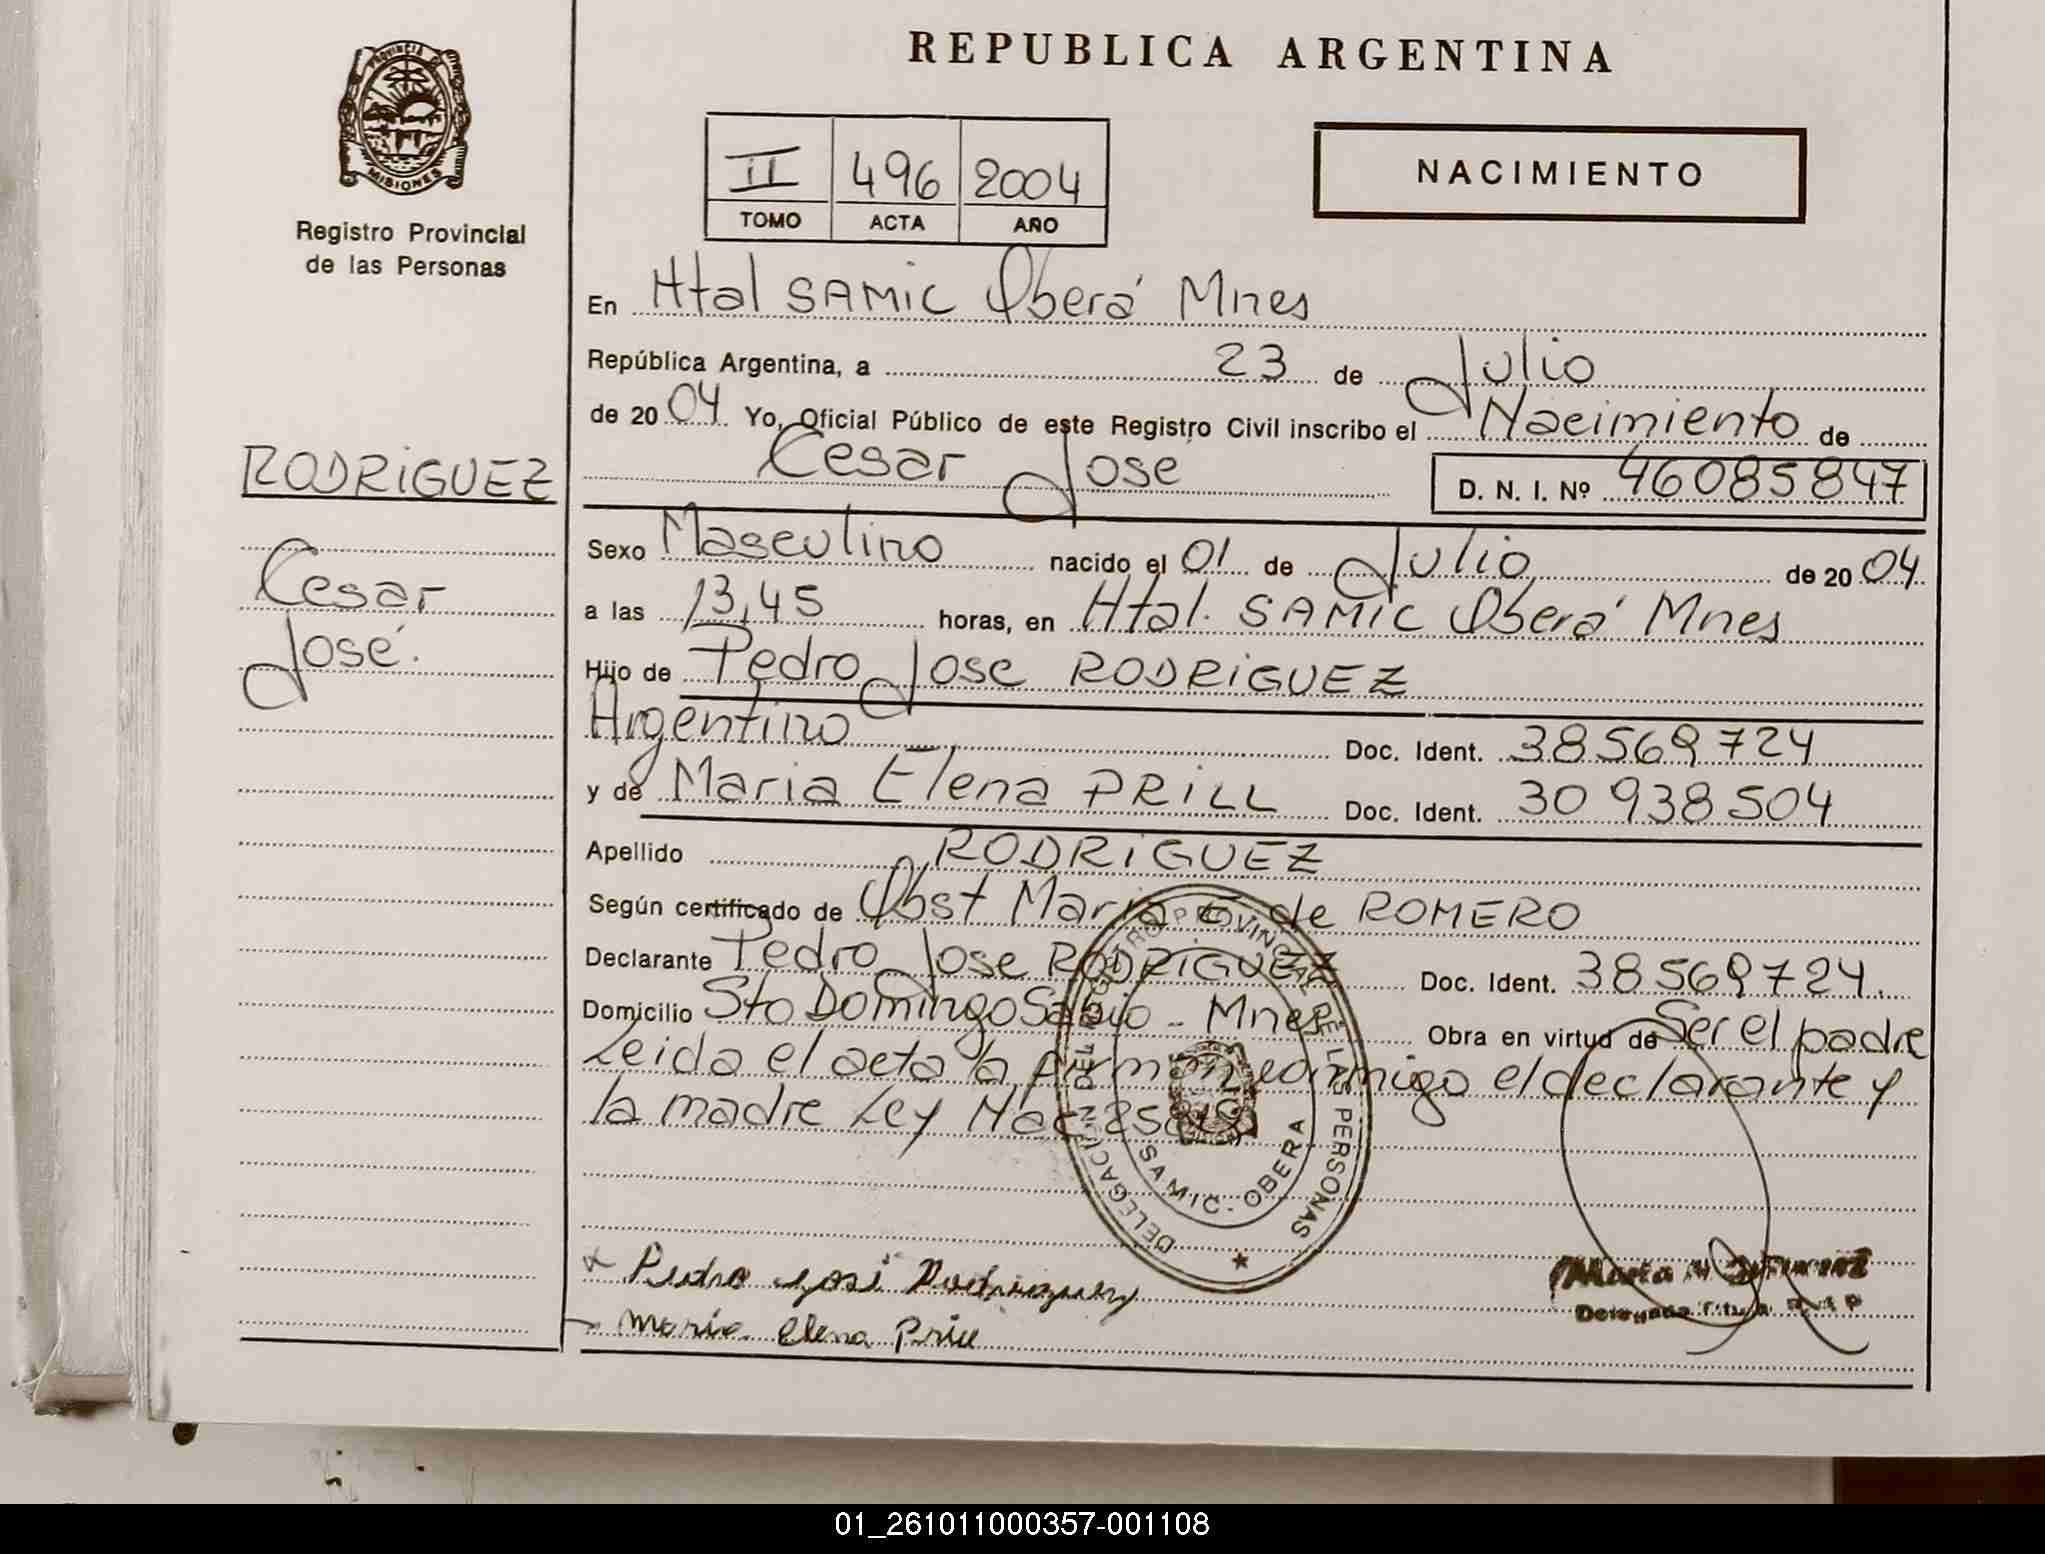 REPUBLICA ARGENTINA
PROVINCIA DE
MISIONES
Registro Provincial
de las Personas
II 496 2004
TOMO ACTA AÑO
NACIMIENTO
RODRIGUEZ
Cesar
José.
En Htal SAMIC Oberá Mnes
República Argentina, a 23 de Julio
de 2004 Yo, Oficial Público de este Registro Civil inscribo el Nacimiento de
Cesar Jose D. N. I. Nº 46085847
Sexo Masculino nacido el 01 de Julio de 2004
a las 13,45 horas, en Htal. SAMIC Oberá Mnes
Hijo de Pedro Jose RODRIGUEZ
Argentino Doc. Ident. 38569724
y de Maria Elena PRILL Doc. Ident. 30938504
Apellido RODRIGUEZ
Según certificado de Obst Maria E de ROMERO
Declarante Pedro Jose RODRIGUEZ Doc. Ident. 38569724.
Domicilio Sto Domingo Sabio - Mnes Obra en virtud de Ser el padre
Leida el acta la firman conmigo el declarante y
la madre Ley Nac
DELEGACION DEL REGISTRO PROVINCIAL DE LAS PERSONAS
SAMIC - OBERA
Pedro José Rodriguez
Maria Elena Prill
Maria
Delegada
01_261011000357-001108